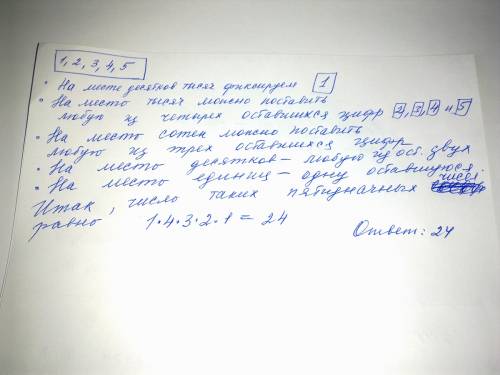 1, 2, 3, 4, 5
• На месте десятков тысяч фиксируем 1
• На место тысяч можно поставить
любую из четырех оставшихся цифр 2, 3, 4 и 5
• На место сотен можно поставить
любую из трех оставшихся цифр
• На место десятков - любую из ост. двух
• На место единиц - одну оставшуюся
Итак, число таких пятизначных чисел
равно 1·4·3·2·1 = 24
Ответ: 24